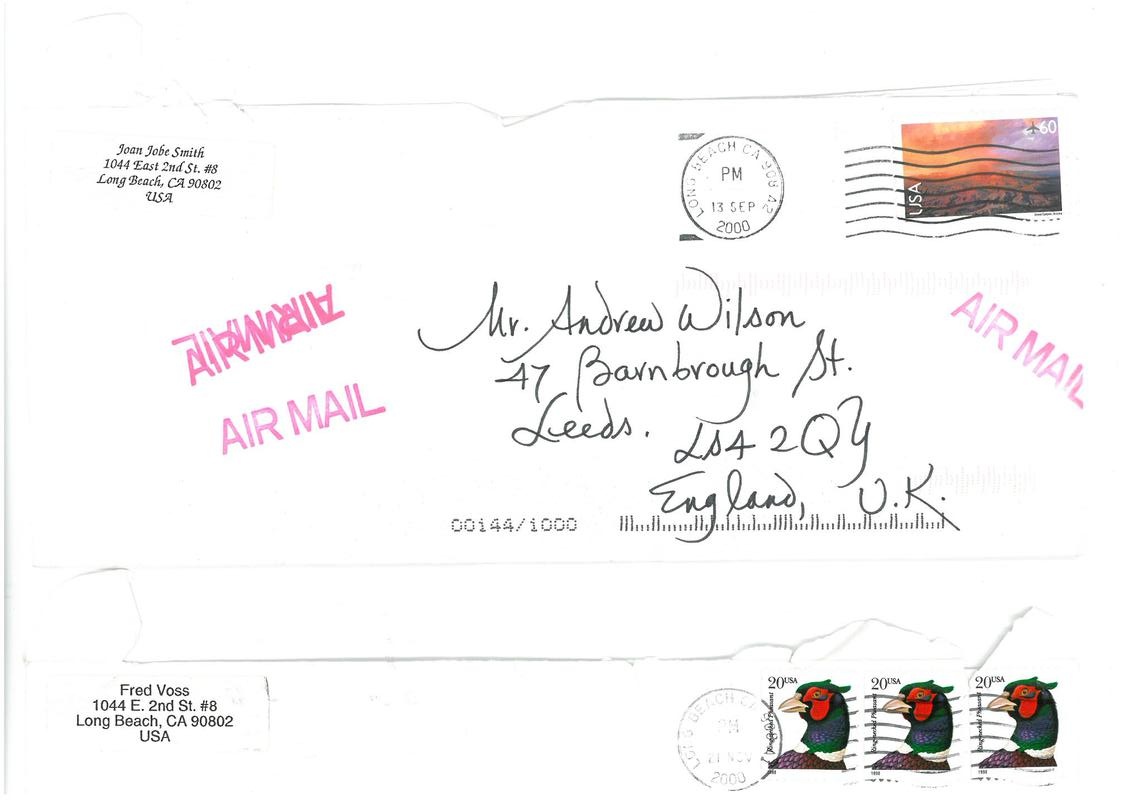 Joan Jobe Smith
1044 East 2nd St. #8
Long Beach, CA 90802
USA
LONG BEACH CA 908 A2
PM
13 SEP
2000
60
USA
AIR MAIL
AIR MAIL
AIR MAIL
AIR MAIL
Mr. Andrew Wilson
47 Barnbrough St.
Leeds. LS4 2QY
England, U.K.
00144/1000
Fred Voss
1044 E. 2nd St. #8
Long Beach, CA 90802
USA
LONG BEACH CA
PM
21 NOV
2000
20 USA
Ring-necked Pheasant
1998
20 USA
Ring-necked Pheasant
1998
20 USA
Ring-necked Pheasant
1998